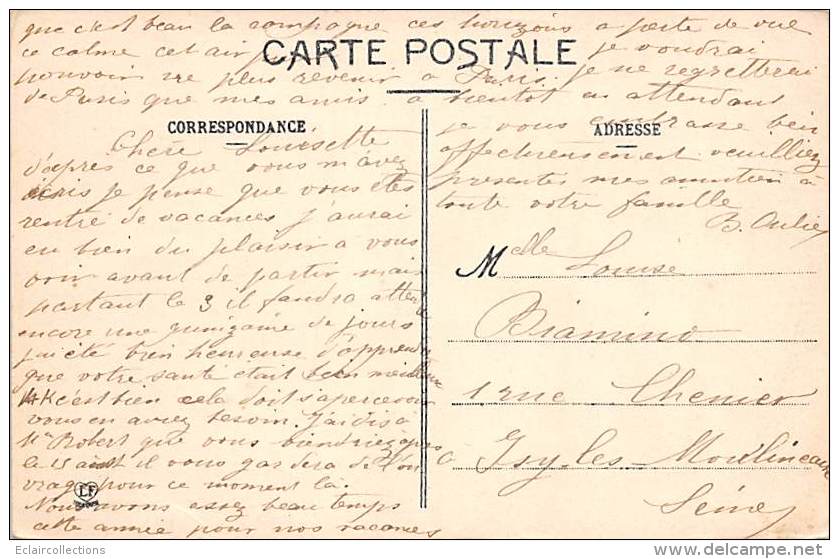 que c'est beau la campagne ces horizons a perte de vue
ce calme cet air je voudrai
CARTE POSTALE
pouvoir ne plus revenir a Paris. je ne regretterai
de Paris que mes amis. a bientot en attendant
CORRESPONDANCE
Chère Louisette
d'apres ce que vous m'avez
écris je pense que vous êtes
rentré de vacances j'aurai
eu bien du plaisir a vous
voir avant de partir mais
partant le 3 il faudra attendre
encore une quinzaine de jours
j'ai été bien heureuse d'apprendre
que votre santé était bien meilleure
c'est bien cela doit s'apercevoir
vous en aviez besoin. J'ai dis a
Mr Robert que vous viendriez apres
le 15 aout il vous gardera de l'ou
vrage pour ce moment la.
Nous avons assez beau temps
cette année pour nos vacances
ADRESSE
je vous embrasse bien
affectueusement veuilliez
presentes mes amitien à
toute votre famille
B. Aulie
Mlle Louise
Biamino
1 rue Chenier
a Issy-les-Moulineaux
Seine
LF
Eclaircollections
© delcampe.net